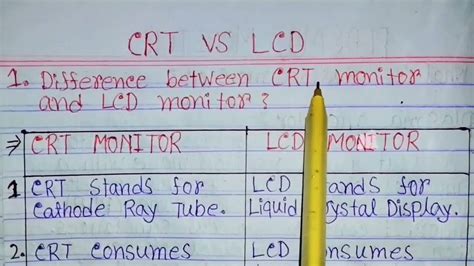 CRT VS LCD
1. Difference between CRT monitor
and LCD monitor?
⇒ CRT MONITOR LCD MONITOR
1 CRT Stands for LCD tands for
Cathode Ray Tube. Liquid ystal Display.
2. CRT Consumes LCD nsumes